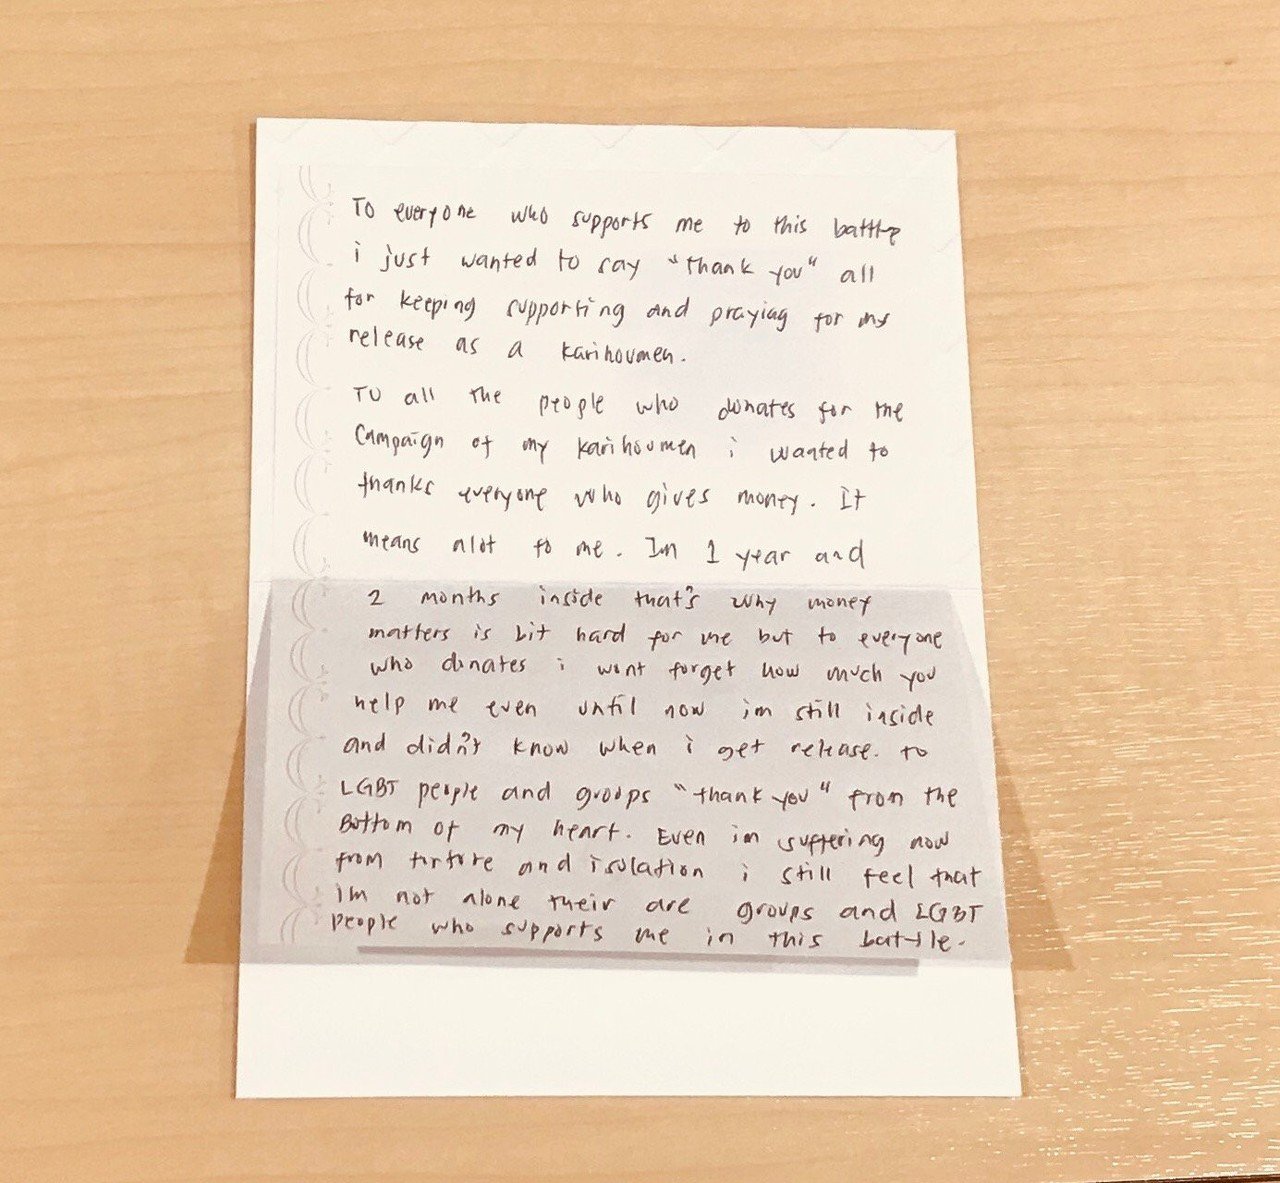 To everyone who supports me to this battle
i just wanted to say "thank you" all
for keeping supporting and praying for my
release as a karihoumen.
To all the people who donates for the
Campaign of my karihoumen i wanted to
thanks everyone who gives money. It
means alot to me. In 1 year and
2 months inside that's why money
matters is bit hard for me but to everyone
who donates i wont forget how much you
help me even until now im still inside
and didn't know when i get release. to
LGBT people and groups "thank you" from the
Bottom of my heart. Even im suffering now
from torture and isolation i still feel that
im not alone their are groups and LGBT
people who supports me in this battle.